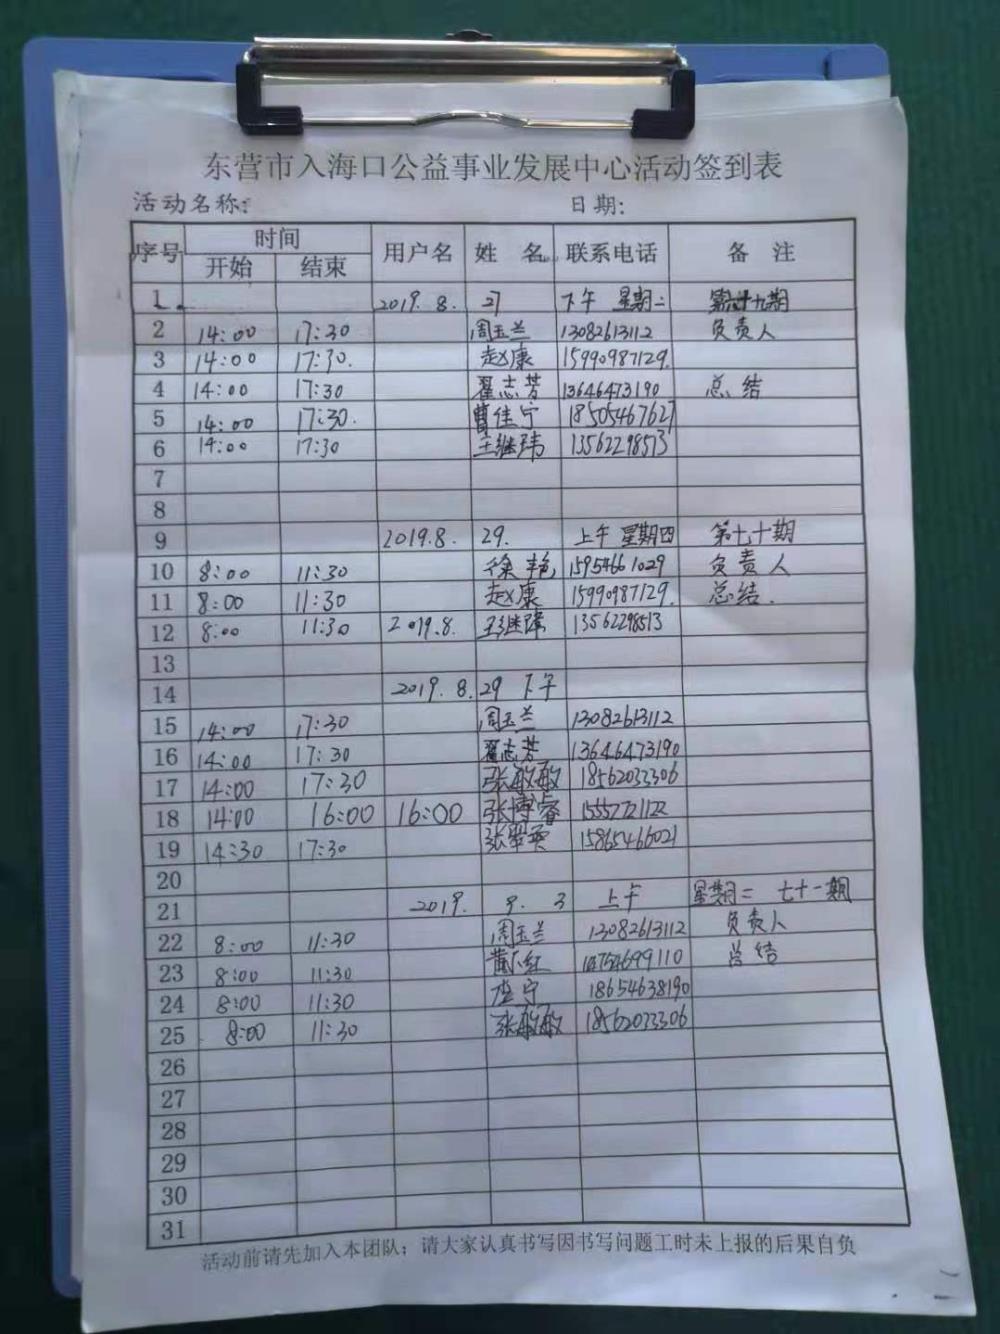 东营市入海口公益事业发展中心活动签到表
活动名称: 日期:
序号 时间 用户名 姓 名 联系电话 备 注
开始 结束
1 2019. 8. 27 下午 星期二 第六十九期
2 14:00 17:30 周玉兰 13082613112 负责人
3 14:00 17:30. 赵康 15990987129.
4 14:00 17:30 翟志芳 13646473190 总结
5 14:00 17:30. 曹佳宁 18505467627
6 14:00 17:30 王继玮 13562298513
7
8
9 2019.8. 29. 上午 星期四 第七十期
10 8:00 11:30 徐艳 15954661029 负责人
11 8:00 11:30 赵康 15990987129. 总结.
12 8:00 11:30 2019.8. 13562298513
13
14 2019. 8. 29 下午
15 14:00 17:30 周玉兰 13082613112
16 14:00 17:30 翟志芳 13646473190
17 14:00 17:30 张敏敏 18562033306
18 14:00 16:00 16:00 张博睿 15552721122
19 14:30 17:30 张翠英 15865466021
20
21 2019. 9. 3 上午 星期二 七十一期
22 8:00 11:30 周玉兰 13082613112 负责人
23 8:00 11:30 黄小红 18754699110 总结
24 8:00 11:30 18654638190
25 8:00 11:30 张敏敏 18562033306
26
27
28
29
30
31
活动前请先加入本团队；请大家认真书写因书写问题工时未上报的后果自负